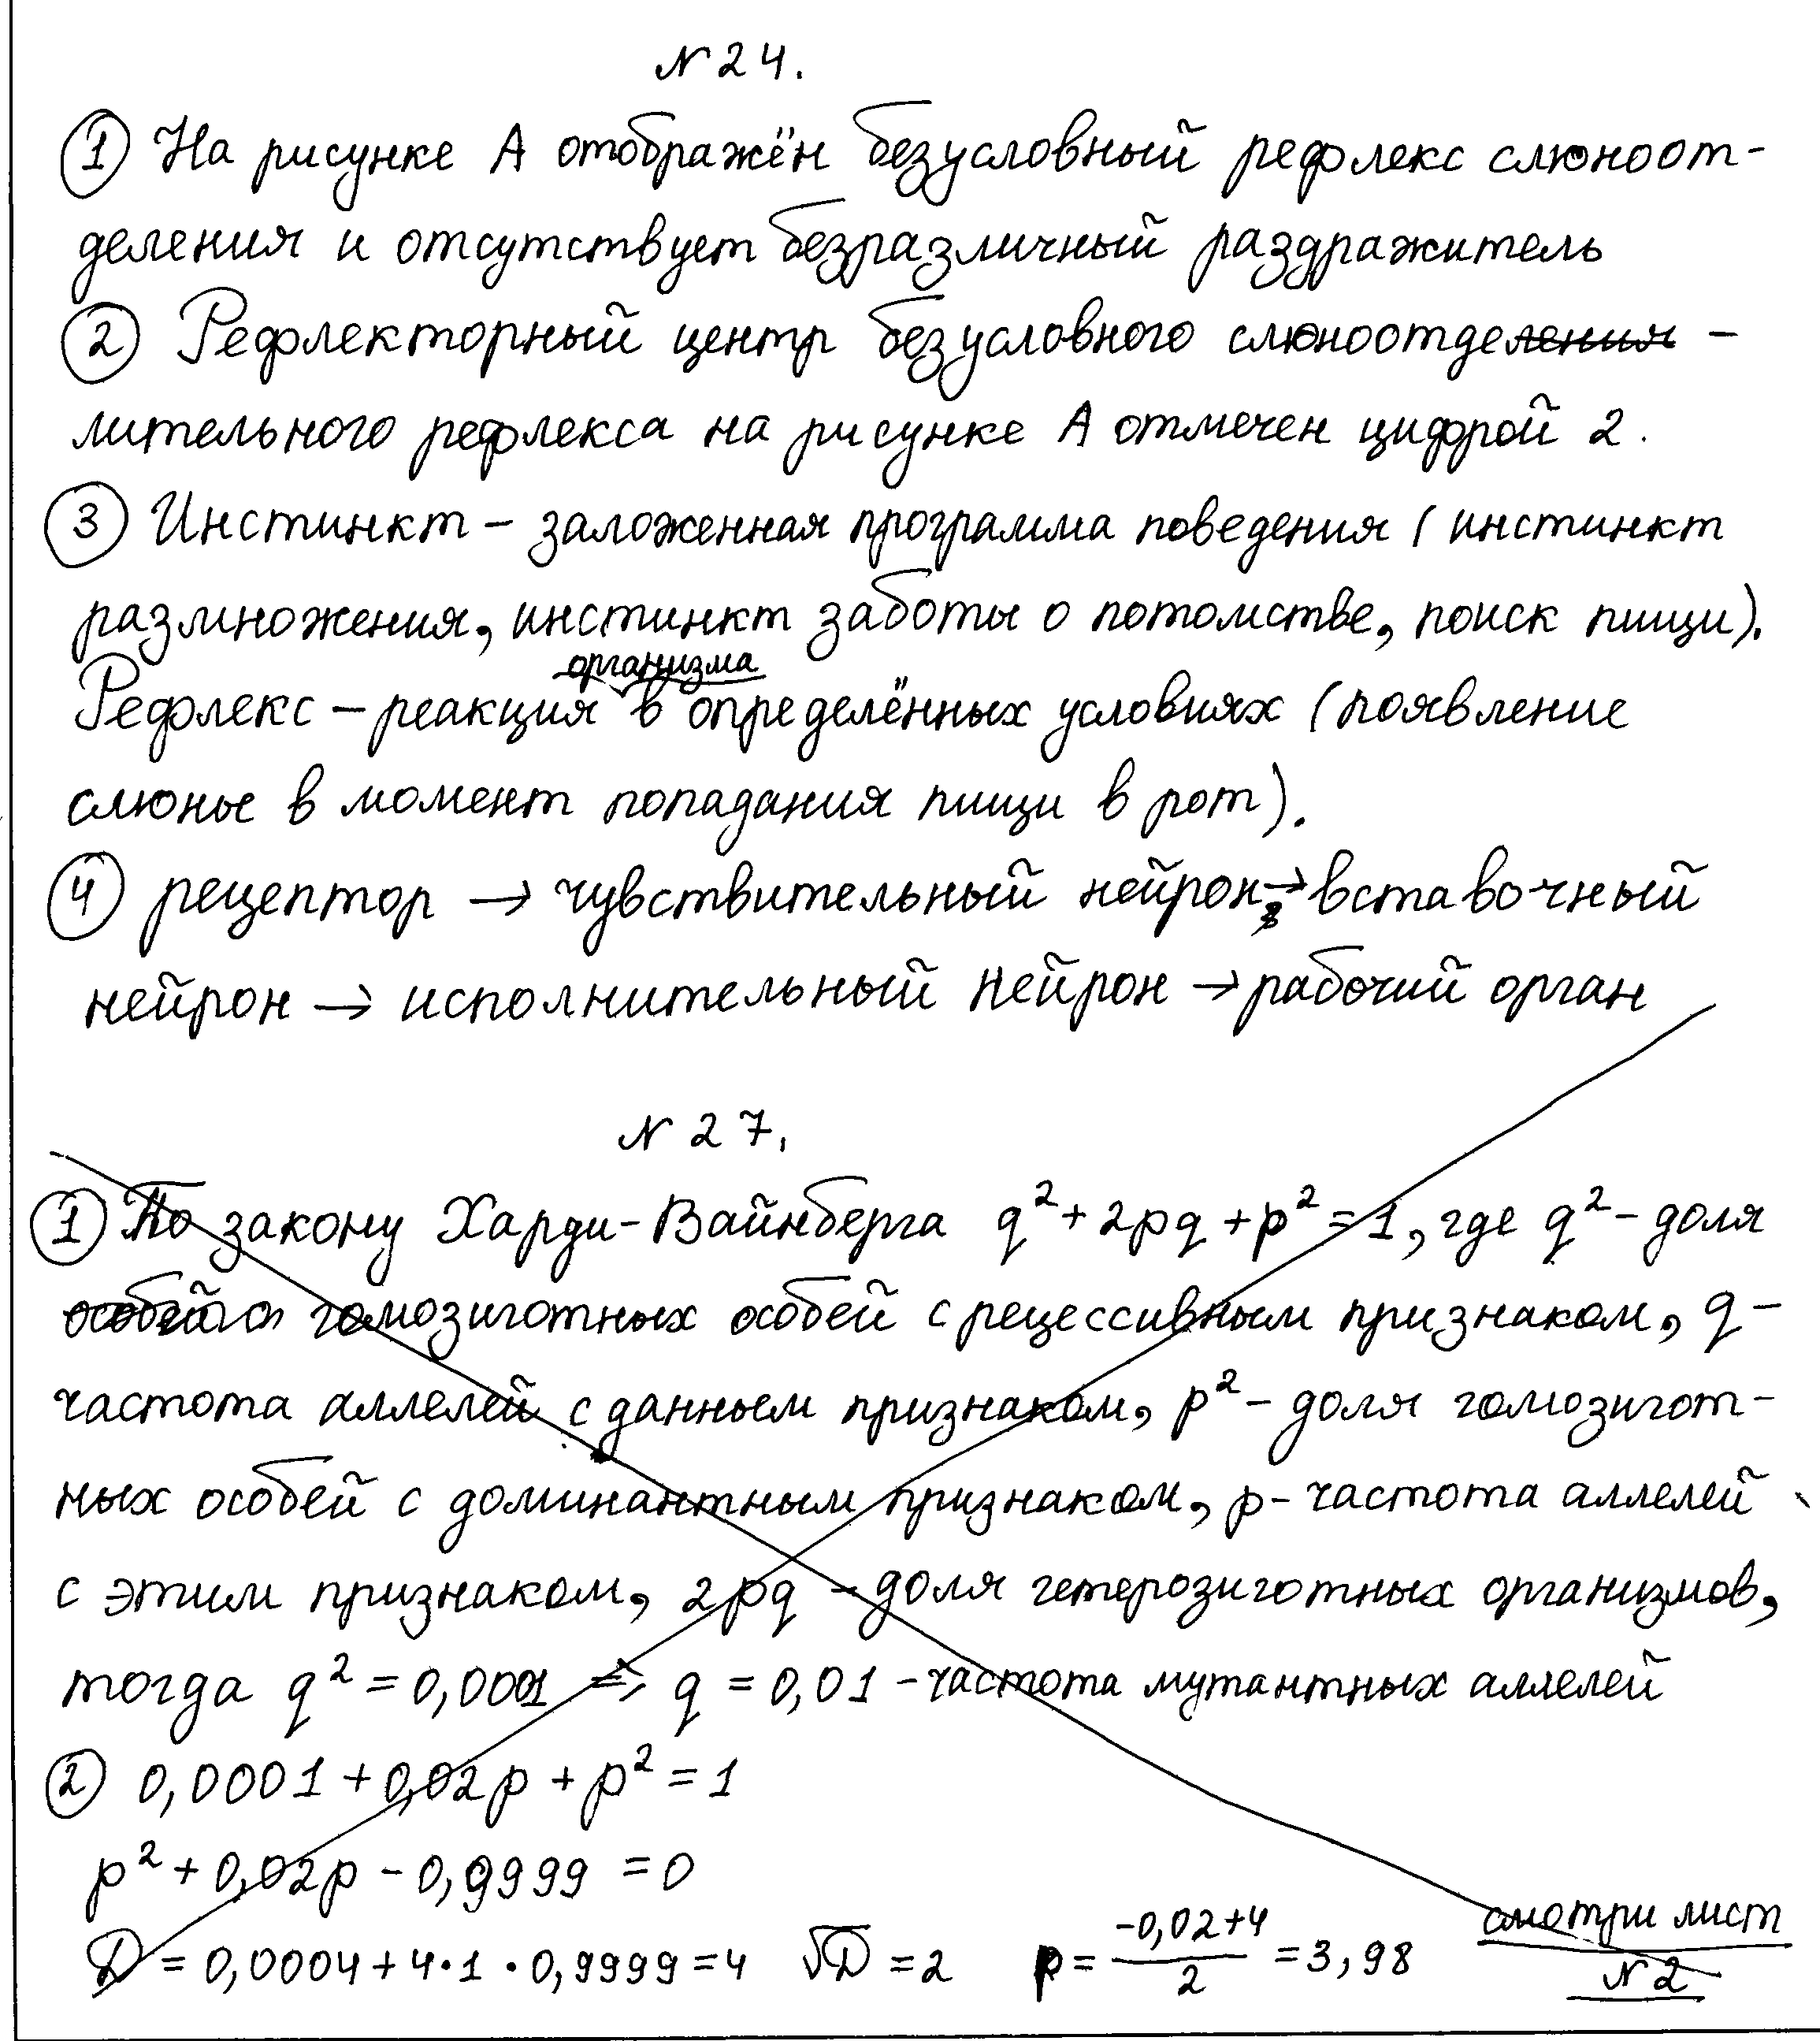 №24.
① На рисунке А отображён безусловный рефлекс слюноот-
деления и отсутствует безразличный раздражитель
② Рефлекторный центр безусловного слюноотделения -
лительного рефлекса на рисунке А отмечен цифрой 2.
③ Инстинкт – заложенная программа поведения (инстинкт
размножения, инстинкт заботы о потомстве, поиск пищи).
организма
Рефлекс – реакция в определённых условиях (появление
слюны в момент попадания пищи в рот).
④ рецептор → чувствительный нейрон → вставочный
нейрон → исполнительный нейрон → рабочий орган
№27.
① По закону Харди-Вайнберга q² + 2pq + p² = 1, где q² – доля
гомозиготных особей с рецессивным признаком, q –
частота аллелей с данным признаком, p² – доля гомозигот-
ных особей с доминантным признаком, p – частота аллелей
с этим признаком, 2pq – доля гетерозиготных организмов,
тогда q² = 0,0001 ⇒ q = 0,01 – частота мутантных аллелей
② 0,0001 + 0,02p + p² = 1
p² + 0,02p - 0,9999 = 0
D = 0,0004 + 4·1·0,9999 = 4 √D = 2 p = (-0,02+4)/2 = 3,98 смотри лист
№2